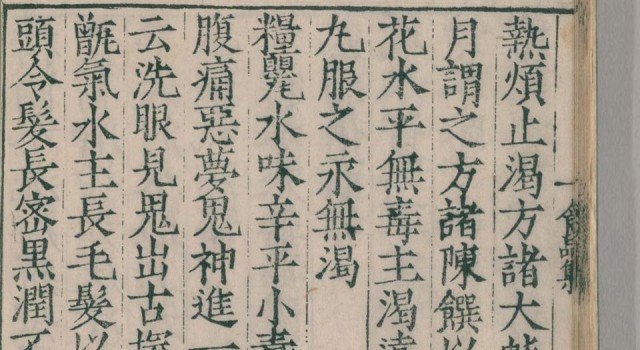 食品集
熱煩止渴方諸大
月謂之方諸陳饌以
花水平無毒主渴遠
九服之永無渴
糧甖水味辛平小毒
腹痛惡夢鬼神進一
云洗眼見鬼出古塚
甑氣水主長毛髮以
頭令髮長宻黑潤不